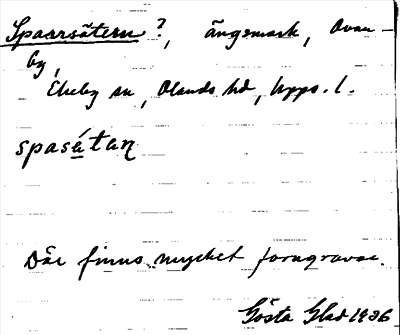 Spaarsätern?, ängsmark, Ovan-
by,
Ekeby sn, Olands hd, Upps. l.
spasátan
Där finns mycket forngravar.
Gösta Glad 1936